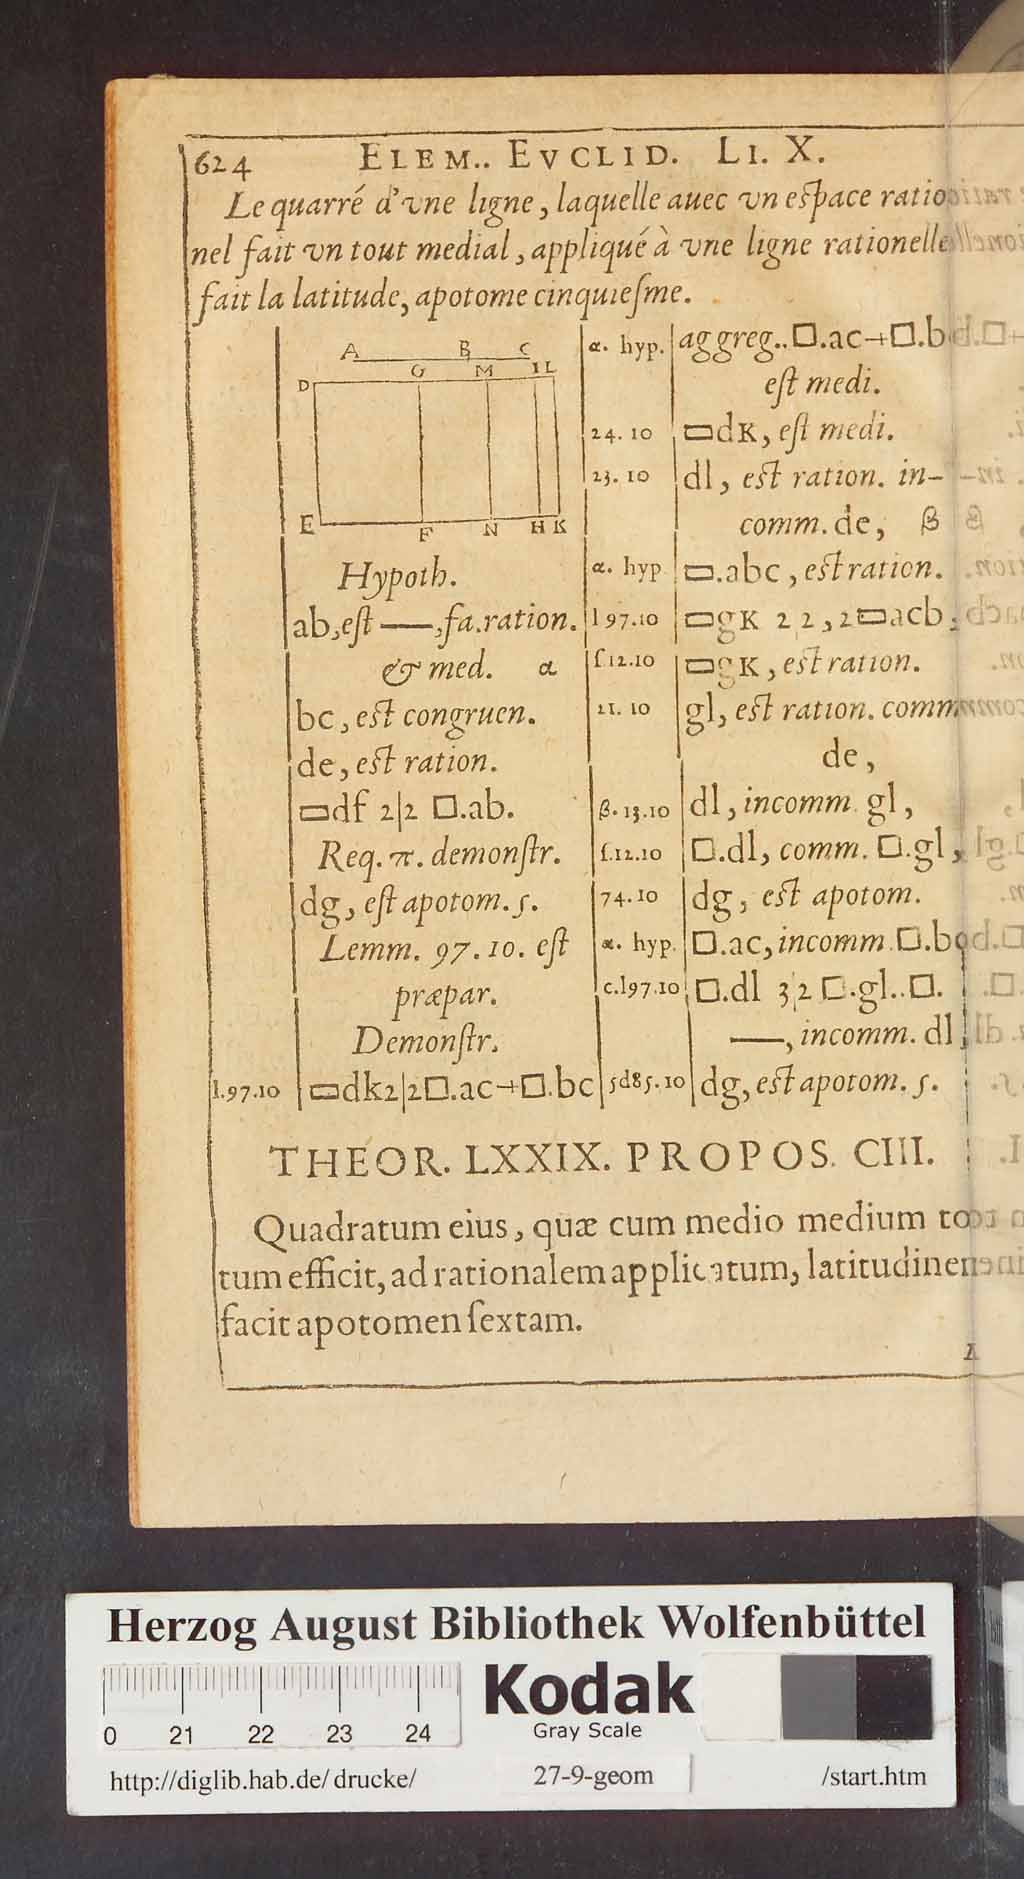 624 ELEM.. EVCLID. LI. X.
Le quarré d'vne ligne, laquelle auec vn eſpace ratio
nel fait vn tout medial, appliqué à vne ligne rationelle
fait la latitude, apotome cinquieſme.
A B C
G M I L
D
E F N H K
Hypoth.
ab, eſt —, fa. ration.
& med. α
bc, eſt congruen.
de, eſt ration.
▭df 2|2 □.ab.
Req. π. demonſtr.
dg, eſt apotom. 5.
Lemm. 97. 10. eſt
præpar.
Demonſtr.
l.97.10 ▭dk2|2□.ac+□.bc
α. hyp. aggreg..□.ac+□.b
eſt medi.
24. 10 ▭dK, eſt medi.
23. 10 dl, eſt ration. in-
comm. de, β
α. hyp ▭.abc, eſt ration.
l 97.10 ▭gK 2 2, 2▭acb,
ſ.12.10 ▭gK, eſt ration.
21. 10 gl, eſt ration. comm
de,
β. 13.10 dl, incomm. gl,
ſ.12.10 □.dl, comm. □.gl,
74. 10 dg, eſt apotom.
α. hyp. □.ac, incomm □.b
c.l97.10 □.dl 3|2 □.gl..□.
—, incomm. dl
5d85.10 dg, eſt apotom. 5.
THEOR. LXXIX. PROPOS. CIII.
Quadratum eius, quæ cum medio medium to
tum efficit, ad rationalem applicatum, latitudinem
facit apotomen ſextam.
Herzog August Bibliothek Wolfenbüttel
Kodak
Gray Scale
0 21 22 23 24
http://diglib.hab.de/drucke/ 27-9-geom /start.htm